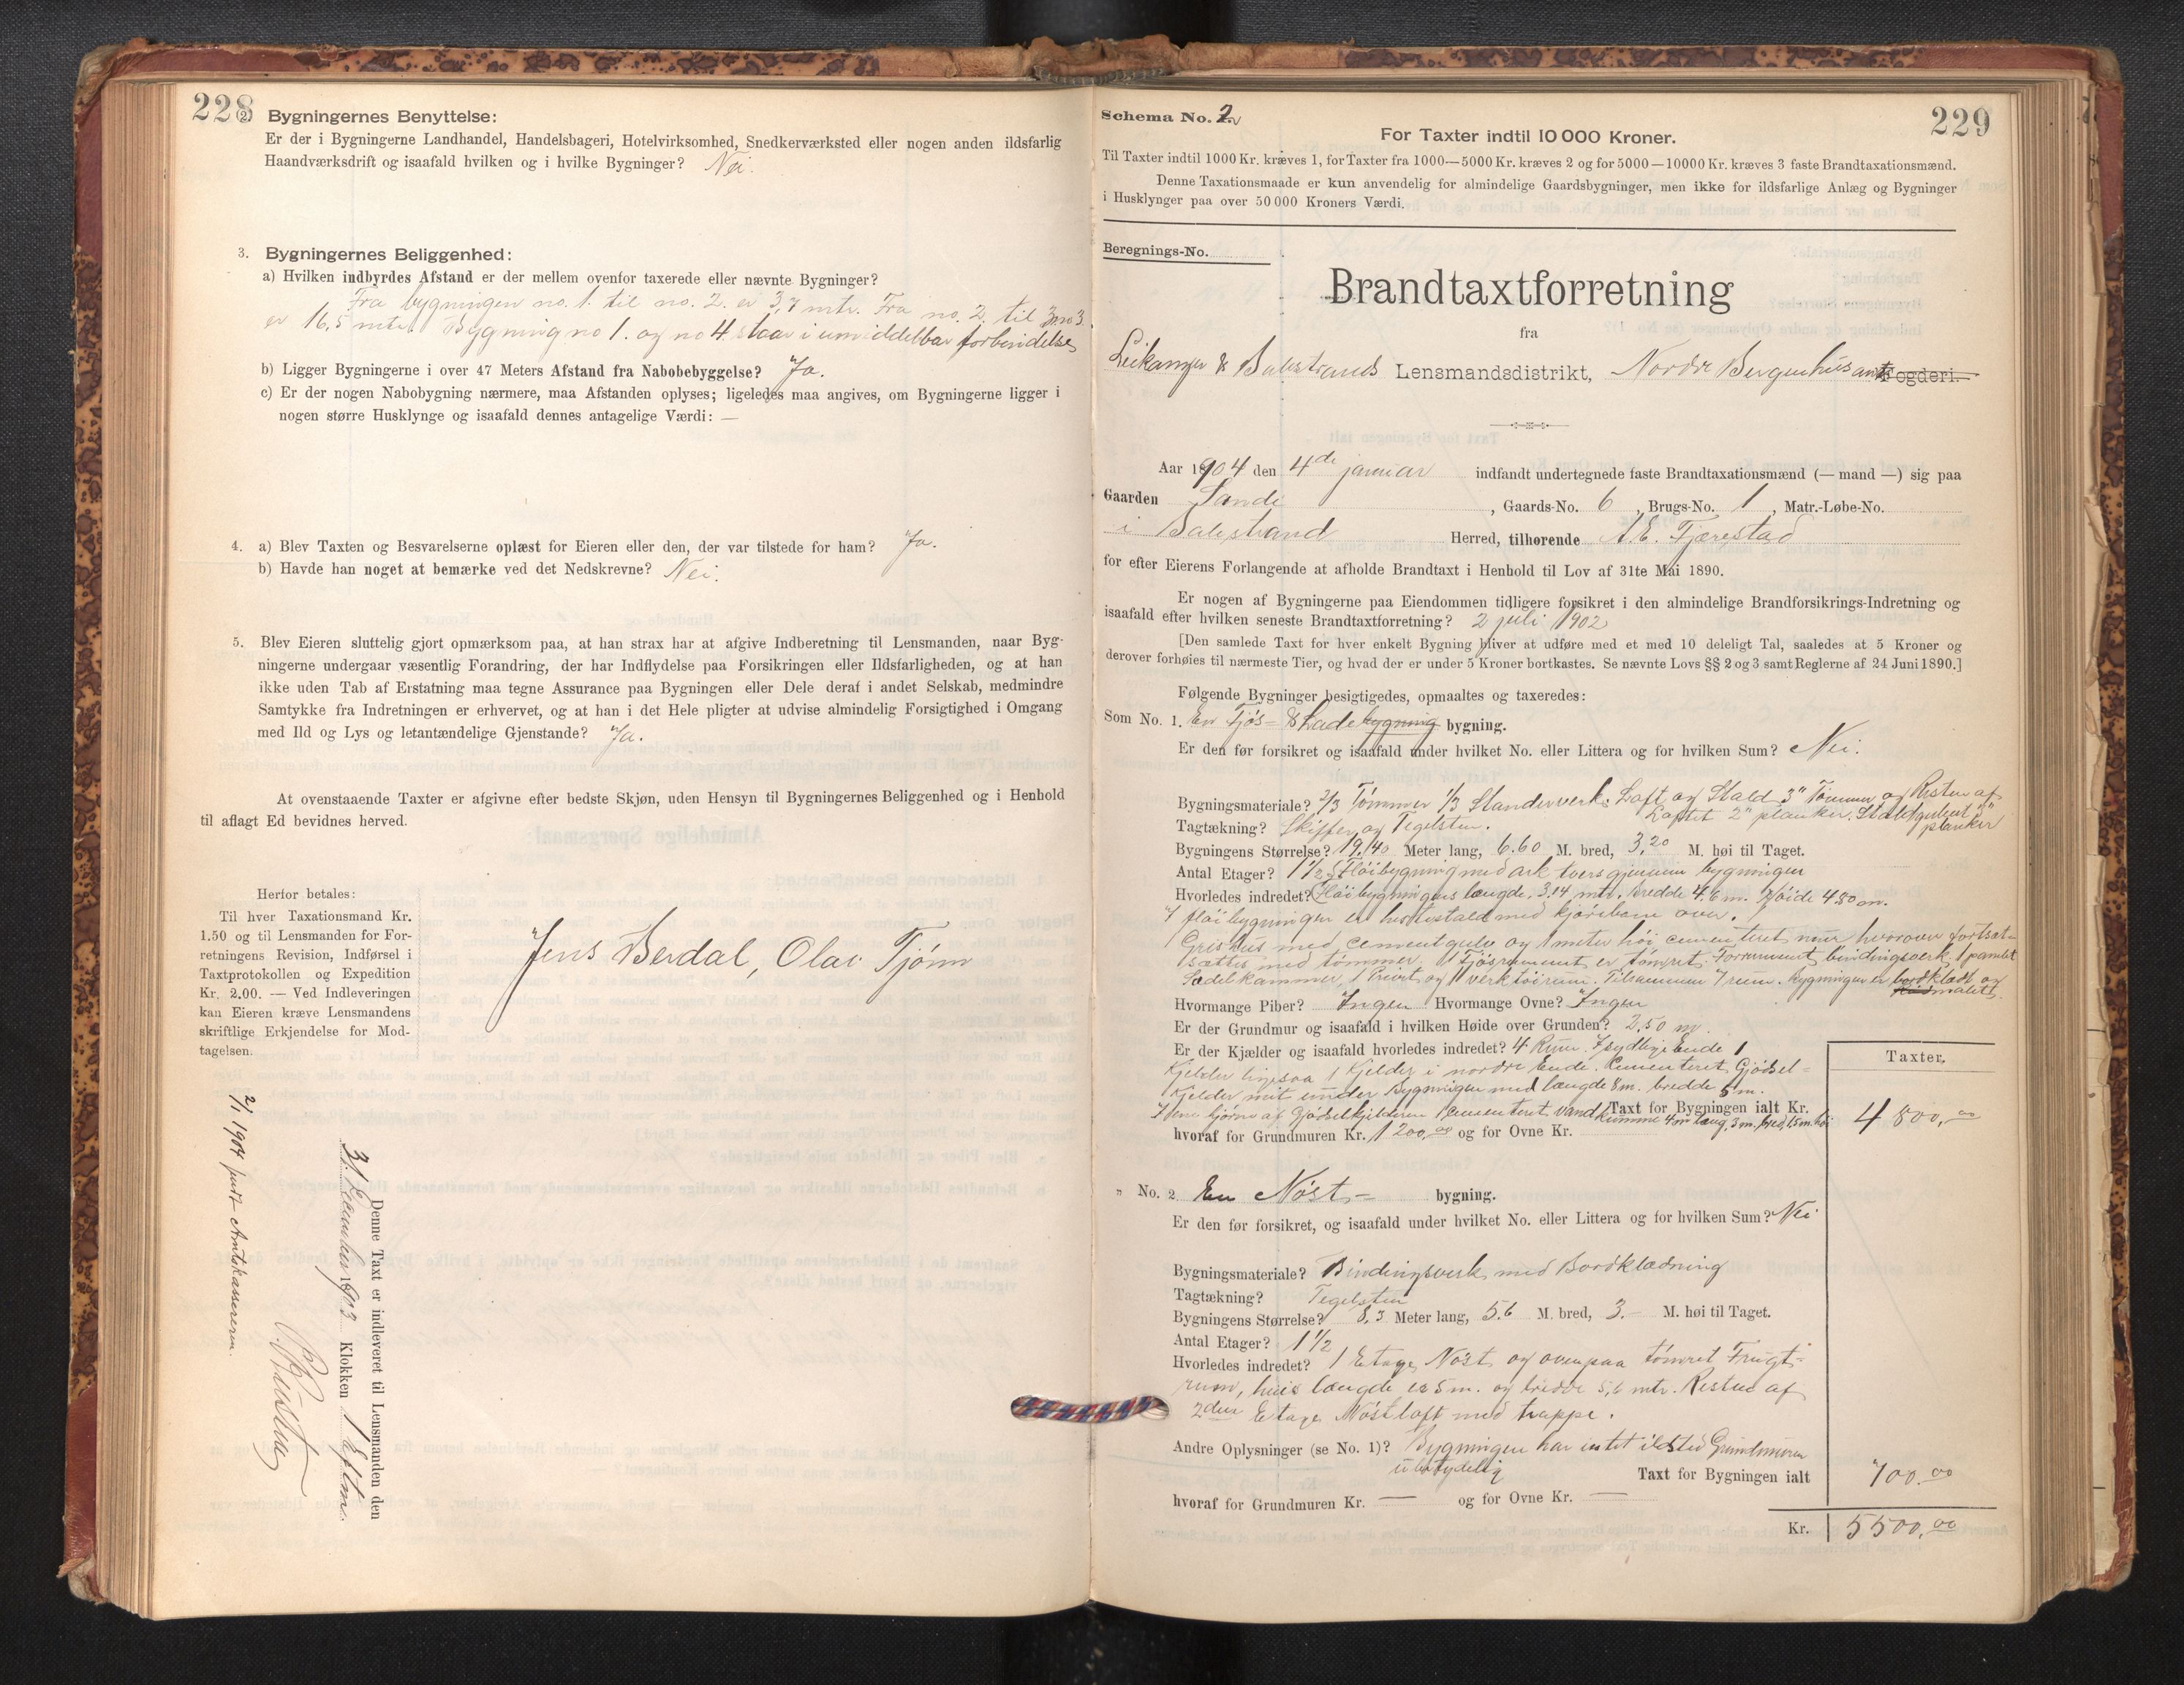 228
2) Bygningernes Benyttelse:
Er der i Bygningerne Landhandel, Handelsbageri, Hotelvirksomhed, Snedkerværksted eller nogen anden ildsfarlig
Haandværksdrift og isaafald hvilken og i hvilke Bygninger? Nei.
3. Bygningernes Beliggenhed:
a) Hvilken indbyrdes Afstand er der mellem ovenfor taxerede eller nævnte Bygninger?
Fra bygningen no. 1. til no. 2. er 3,7 mtr. Fra no. 2. til no 3
er 16,5 mtr. Bygning no 1. og no 4 staar i umiddelbar forbindelse
b) Ligger Bygningerne i over 47 Meters Afstand fra Nabobebyggelse? Ja.
c) Er der nogen Nabobygning nærmere, maa Afstanden oplyses; ligeledes maa angives, om Bygningerne ligger i
nogen større Husklynge og isaafald dennes antagelige Værdi: —
4. a) Blev Taxten og Besvarelserne oplæst for Eieren eller den, der var tilstede for ham? Ja.
b) Havde han noget at bemærke ved det Nedskrevne? Nei.
5. Blev Eieren sluttelig gjort opmærksom paa, at han strax har at afgive Indberetning til Lensmanden, naar Byg-
ningerne undergaar væsentlig Forandring, der har Indflydelse paa Forsikringen eller Ildsfarligheden, og at han
ikke uden Tab af Erstatning maa tegne Assurance paa Bygningen eller Dele deraf i andet Selskab, medmindre
Samtykke fra Indretningen er erhvervet, og at han i det Hele pligter at udvise almindelig Forsigtighed i Omgang
med Ild og Lys og letantændelige Gjenstande? Ja.
At ovenstaaende Taxter er afgivne efter bedste Skjøn, uden Hensyn til Bygningernes Beliggenhed og i Henhold
til aflagt Ed bevidnes herved.
Herfor betales:
Til hver Taxationsmand Kr.
1.50 og til Lensmanden for For-
retningens Revision, Indførsel i
Taxtprotokollen og Expedition
Kr. 2.00. — Ved Indleveringen
kan Eieren kræve Lensmandens
skriftlige Erkjendelse for Mod-
tagelsen.
Jens Berdal, Olai Tjönn
Denne Taxt er indleveret til Lensmanden den
31 1903 Klokken 1 Eftm.
2/1 1904 sendt Amtskassereren.
229
Schema No. 2
For Taxter indtil 10 000 Kroner.
Til Taxter indtil 1000 Kr. kræves 1, for Taxter fra 1000—5000 Kr. kræves 2 og for 5000—10000 Kr. kræves 3 faste Brandtaxationsmænd.
Denne Taxationsmaade er kun anvendelig for almindelige Gaardsbygninger, men ikke for ildsfarlige Anlæg og Bygninger
i Husklynger paa over 50 000 Kroners Værdi.
Beregnings-No.
Brandtaxtforretning
fra
Leikanger & Balestrands Lensmandsdistrikt, Nordre Bergenhus amts Fogderi.
Aar 1904 den 4de januar indfandt undertegnede faste Brandtaxationsmænd (—mand—) sig paa
Gaarden Sande, Gaards-No. 6, Brugs-No. 1, Matr.-Løbe-No.
i Balestrand Herred, tilhørende A. E. Fjærestad
for efter Eierens Forlangende at afholde Brandtaxt i Henhold til Lov af 31te Mai 1890.
Er nogen af Bygningerne paa Eiendommen tidligere forsikret i den almindelige Brandforsikrings-Indretning og
isaafald efter hvilken seneste Brandtaxtforretning? 2 juli 1902
[Den samlede Taxt for hver enkelt Bygning bliver at udføre med et med 10 deleligt Tal, saaledes at 5 Kroner og
derover forhøies til nærmeste Tier, og hvad der er under 5 Kroner bortkastes. Se nævnte Lovs §§ 2 og 3 samt Reglerne af 24 Juni 1890.]
Følgende Bygninger besigtigedes, opmaaltes og taxeredes:
Som No. 1. En Fjøs- & Ladebygning bygning.
Er den før forsikret og isaafald under hvilket No. eller Littera og for hvilken Sum? Nei.
Bygningsmateriale? 2/3 Tømmer 1/3 Standerverk. Loft og Stald 3" Tømmer og Resten af
Loftet 2" planker. planker
Tagtækning? Skiffer og Tegelsten.
Bygningens Størrelse? 19,40 Meter lang, 6.60 M. bred, 3,20 M. høi til Taget.
Antal Etager? 1 1/2 Fløibygning med ark tvers gjennem bygningen
Hvorledes indredet? Fløibygningens længde 3.14 mtr. bredde 4.6 m. Høide 4.80 m.
I fløibygningen er hestestald med kjørebane over.
Grishus med cementgulv og 1 meter høi cementeret mur hvorover fortsat-
sættes med tømmer. 1 Fjøsrummet er tømret. bindingsverk
Sædelkammer, 1 Privet og 1 verktøirum. Tilsammen 7 rum. Bygningen er bordklædt og
malet.
Hvormange Piber? Ingen Hvormange Ovne? Ingen
Er der Grundmur og isaafald i hvilken Høide over Grunden? 2,50 m.
Er der Kjælder og isaafald hvorledes indredet? 4 Rum. I sydlige Ende 1
Kjelder ligesaa 1 Kjelder i nordre Ende. Cementeret Gjødsel-
kjelder mit under Bygningen med længde 8 m. bredde 5 m.
I hjørne af Gjødselkjelderen 1 cementeret vandkumme 4 m lang, 3 m. bred, 1,5 m. høi
Taxt for Bygningen ialt Kr.
hvoraf for Grundmuren Kr. 1200,00 og for Ovne Kr.
Taxter.
4 800,00
" No. 2 En Nøst- bygning.
Er den før forsikret, og isaafald under hvilket No. eller Littera og for hvilken Sum? Nei
Bygningsmateriale? Bindingsverk med Bordklædning
Tagtækning? Tegelsten
Bygningens Størrelse? 8,3 Meter lang, 5.6 M. bred, 3.– M. høi til Taget.
Antal Etager? 1 1/2
Hvorledes indredet? 1 Etage Nøst og ovenpaa tømret Frugt-
rum, hvis længde er 5 m. og bredde 5,6 mtr. Resten af
2den Etage Nøstloft med trappe.
Andre Oplysninger (se No. 1)? Bygningen har intet ildsted Grundmuren
ubetydelig
Taxt for Bygningen ialt 700.00
hvoraf for Grundmuren Kr. — og for Ovne Kr. —
Kr. 5500,00